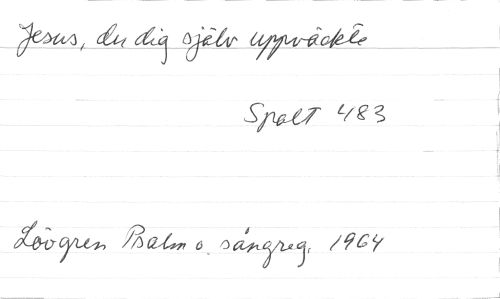 Jesus, du dig själv uppväckte
Spalt 483
Lövgren Psalm o. sångreg. 1964